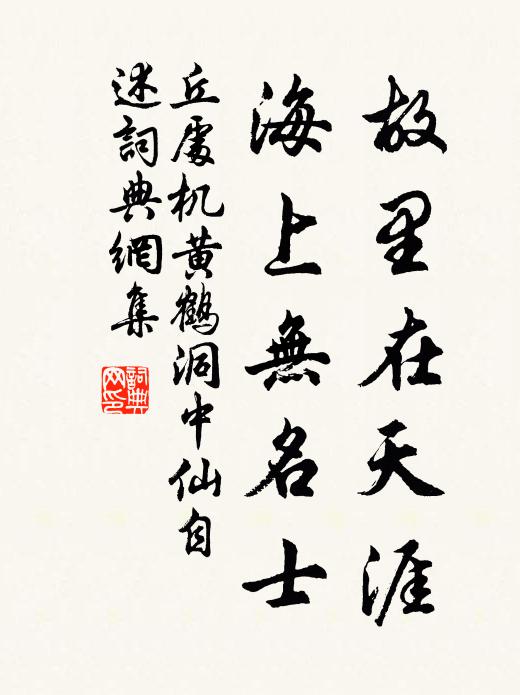 故里在天涯
海上無名士
丘處机黄鶴洞中仙自
述詞典網集
詞典
网印